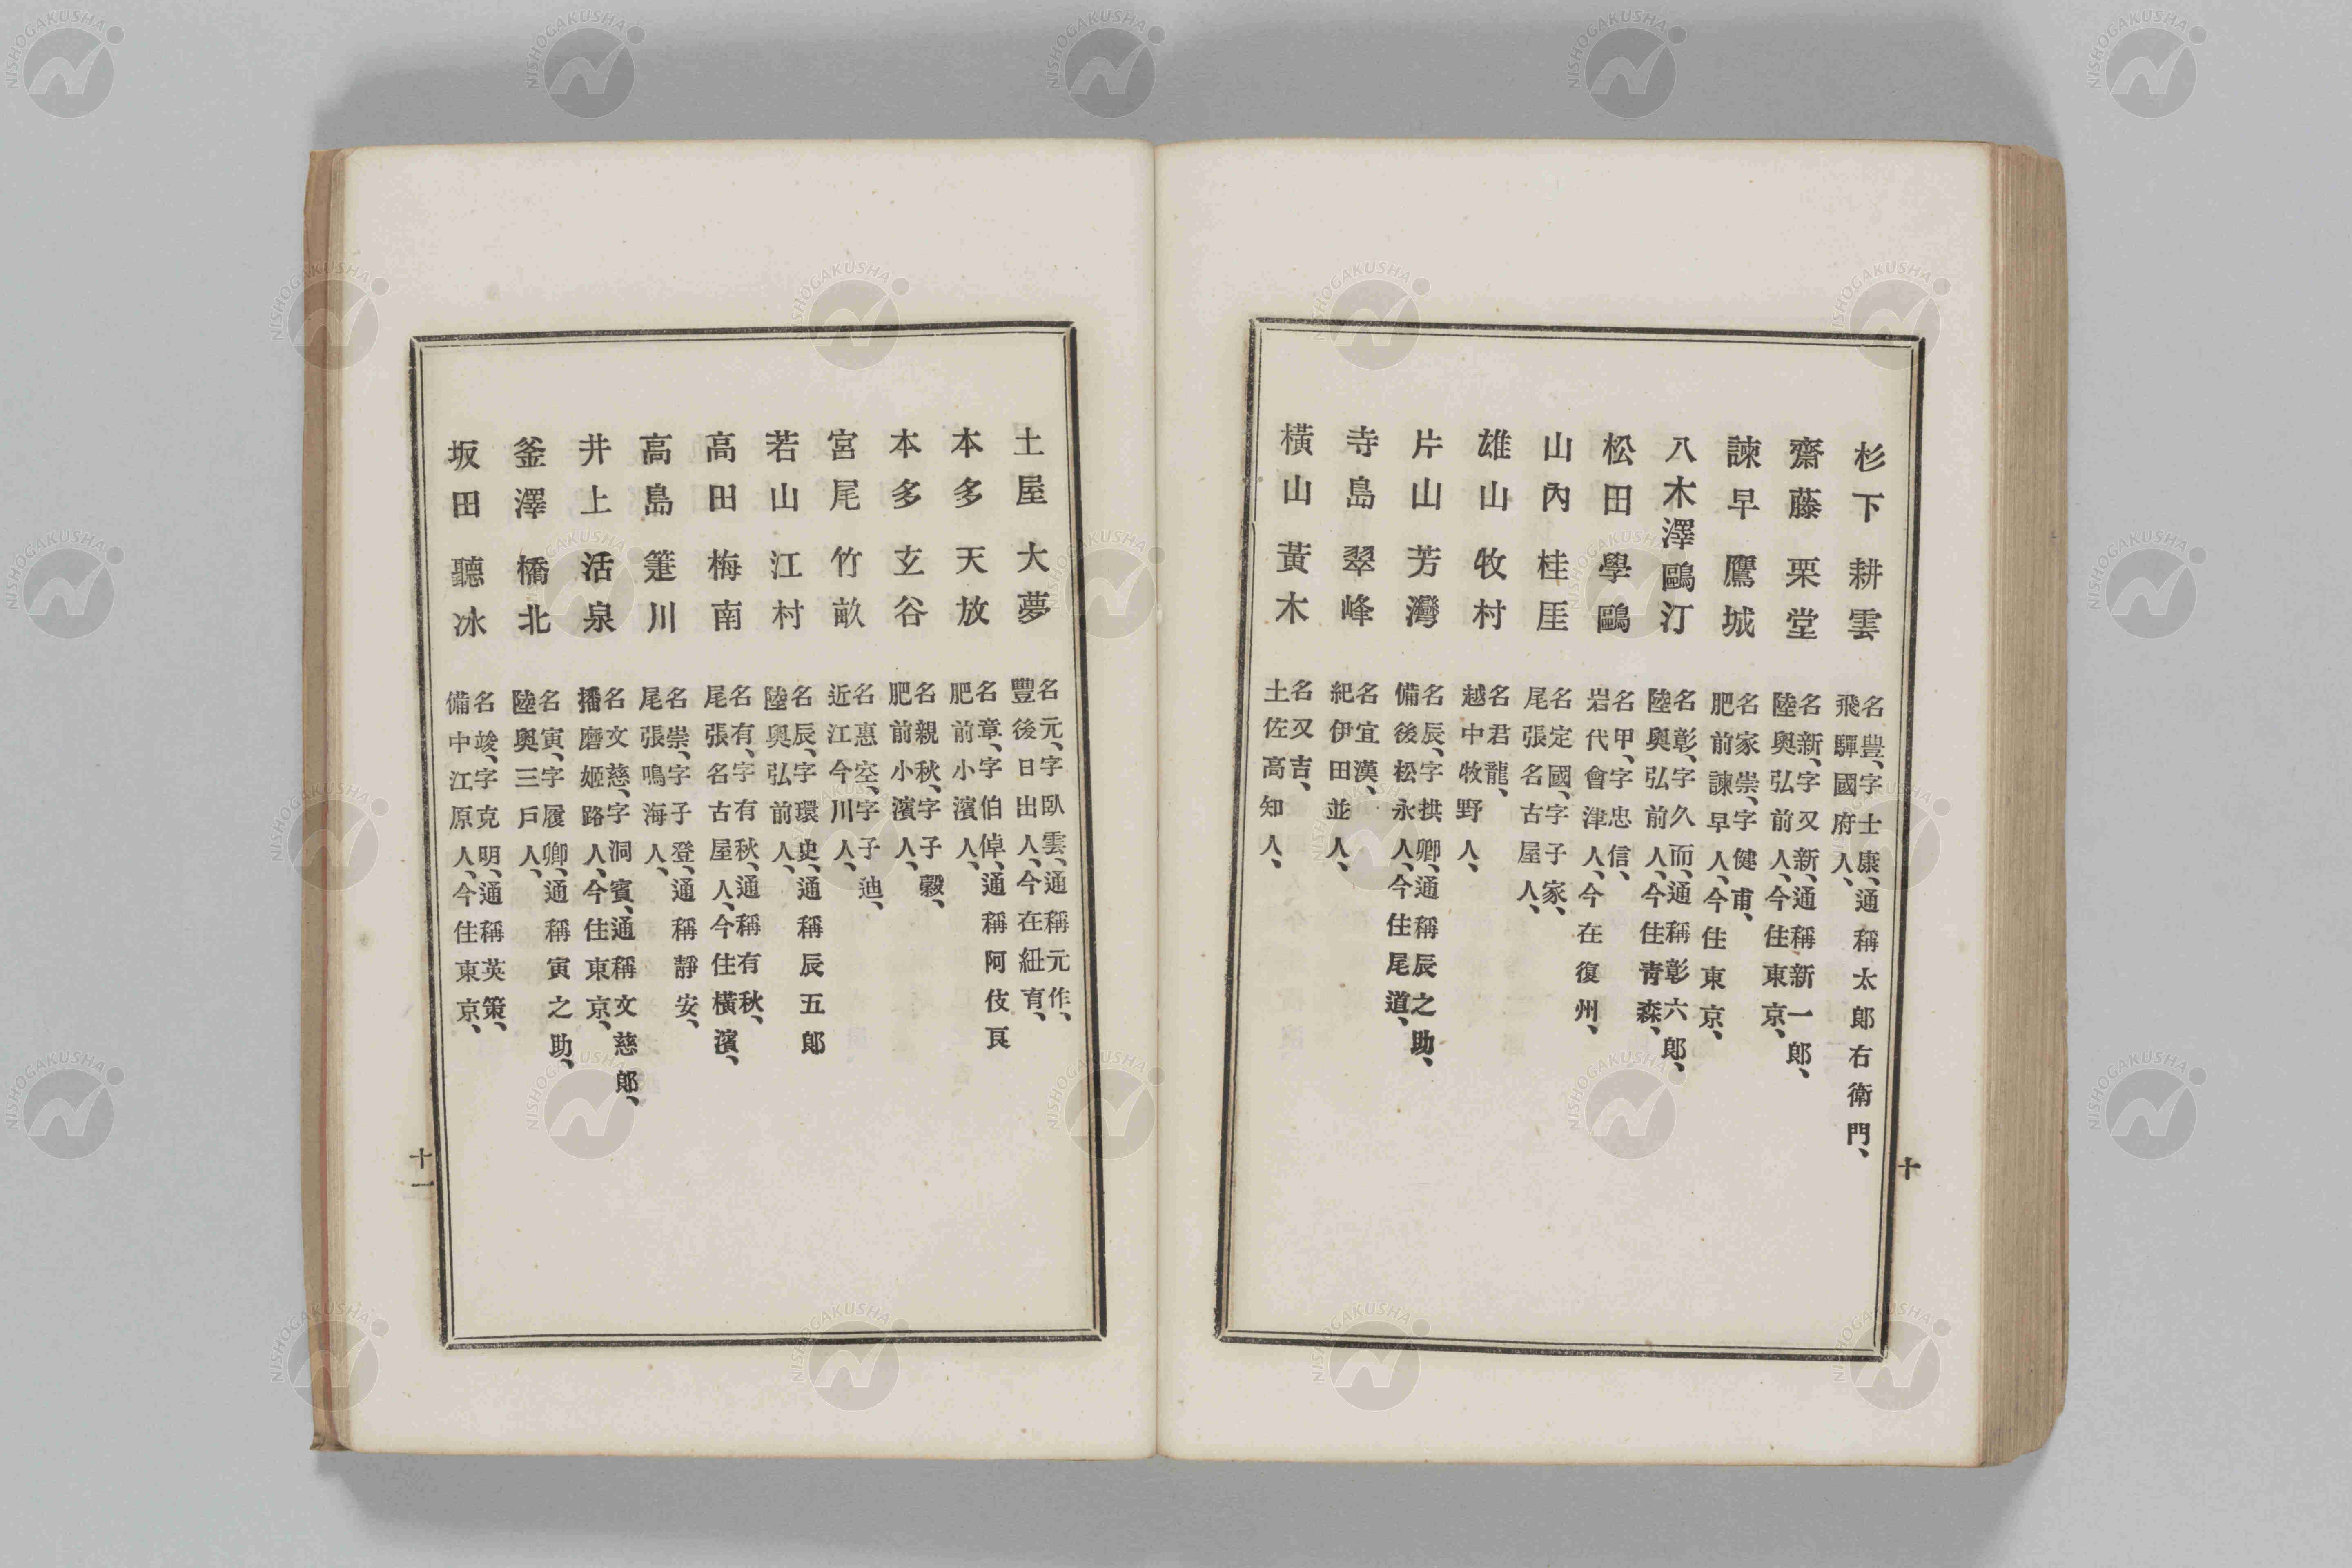 杉下耕雲
名豊、字士康、通稱太郎右衛門、
飛驒國府人、
齋藤栗堂
名新、字又新、通稱新一郎、
陸奥弘前人、今住東京、
諫早鷹城
名家崇、字健甫、
肥前諫早人、今住東京、
八木澤鷗汀
名彰、字久而、通稱彰六郎、
陸奥弘前人、今住青森、
松田學鷗
名甲、字忠信、
岩代會津人、今在復州、
山內桂厓
名定國、字子家、
尾張名古屋人、
雄山牧村
名君龍、
越中牧野人、
片山芳灣
名辰、字拱卿、通稱辰之助、
備後松永人、今住尾道、
寺島翠峰
名宜漢、
紀伊田並人、
橫山黃木
名又吉、
土佐高知人、
十
土屋大夢
名元、字臥雲、通稱元作、
豐後日出人、今在紐育、
本多天放
名章、字伯倬、通稱阿伎良
肥前小濱人、
本多玄谷
名親秋、字子穀、
肥前小濱人、
宮尾竹畝
名惠空、字子迪、
近江今川人、
若山江村
名辰、字環史、通稱辰五郎
陸奥弘前人、
高田梅南
名有、字有秋、通稱有秋、
尾張名古屋人、今住橫濱、
高島箑川
名崇、字子登、通稱靜安、
尾張鳴海人、
井上活泉
名文慈、字洞賓、通稱文慈郎、
播磨姬路人、今住東京、
釜澤橋北
名寅、字履卿、通稱寅之助、
陸奥三戶人、
坂田聽冰
名竣、字克明、通稱英策、
備中江原人、今住東京、
十一
NISHOGAKUSHA